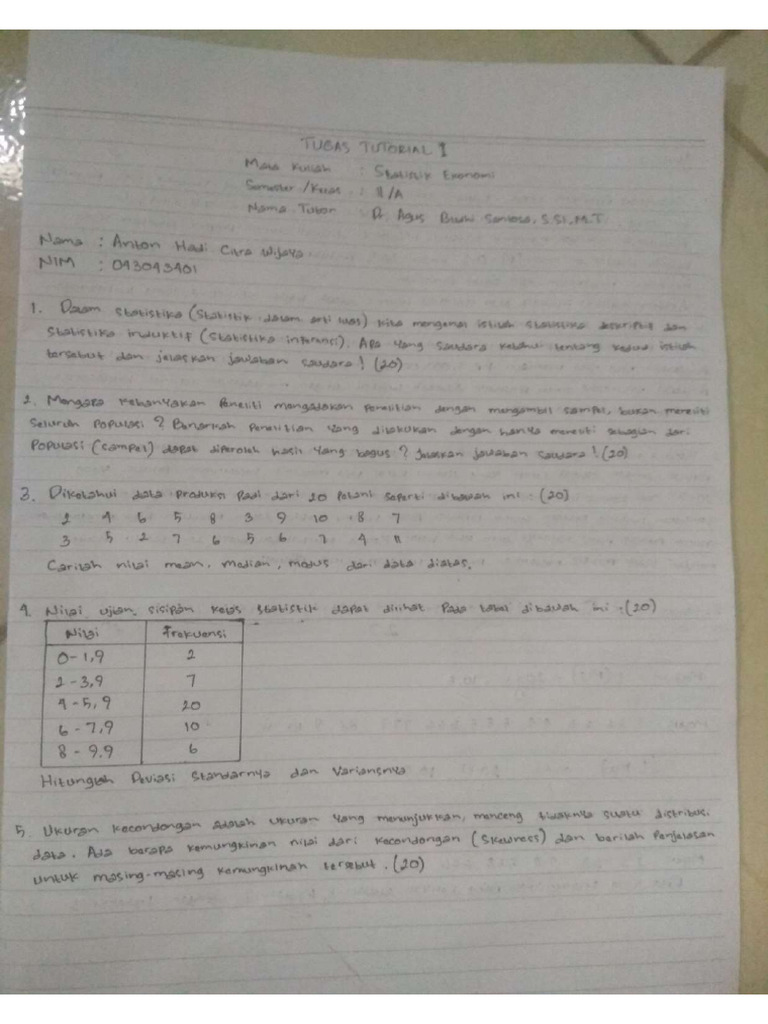 TUGAS TUTORIAL 1
Mata Kuliah : Statistik Ekonomi
Semester / Kelas : II/A
Nama Tutor : Dr. Agus Budhi Santosa, S.Si, M.T
Nama : Anton Hadi Citra Wijaya
NIM : 043043401
1. Dalam statistika (statistik dalam arti luas) kita mengenal istilah statistika deskriptif dan
Statistika induktif (statistika inferensi). Apa yang saudara ketahui tentang kedua istilah
tersebut dan jelaskan jawaban saudara! (20)
2. Mengapa kebanyakan Peneliti mengadakan Penelitian dengan mengambil sampel, bukan meneliti
seluruh Populasi? Benarkah Penelitian yang dilakukan dengan hanya meneliti sebagian dari
Populasi (sampel) dapat diperoleh hasil yang bagus? Jelaskan jawaban saudara! (20)
3. Diketahui data produksi Padi dari 20 Petani seperti dibawah ini : (20)
2 4 6 5 8 3 9 10 8 7
3 5 2 7 6 5 6 7 4 11
Carilah nilai mean, median, modus dari data diatas.
4. Nilai ujian sisipan kelas statistik dapat dilihat Pada tabel dibawah ini : (20)
Nilai Frekuensi
0 - 1,9 2
2 - 3,9 7
4 - 5,9 20
6 - 7,9 10
8 - 9,9 6
Hitunglah Deviasi Standarnya dan Variansnya
5. Ukuran kecondongan adalah ukuran yang menunjukkan, menceng tidaknya suatu distribusi
data. Ada berapa kemungkinan nilai dari kecondongan (Skewness) dan berilah Penjelasan
untuk masing-masing kemungkinan tersebut. (20)